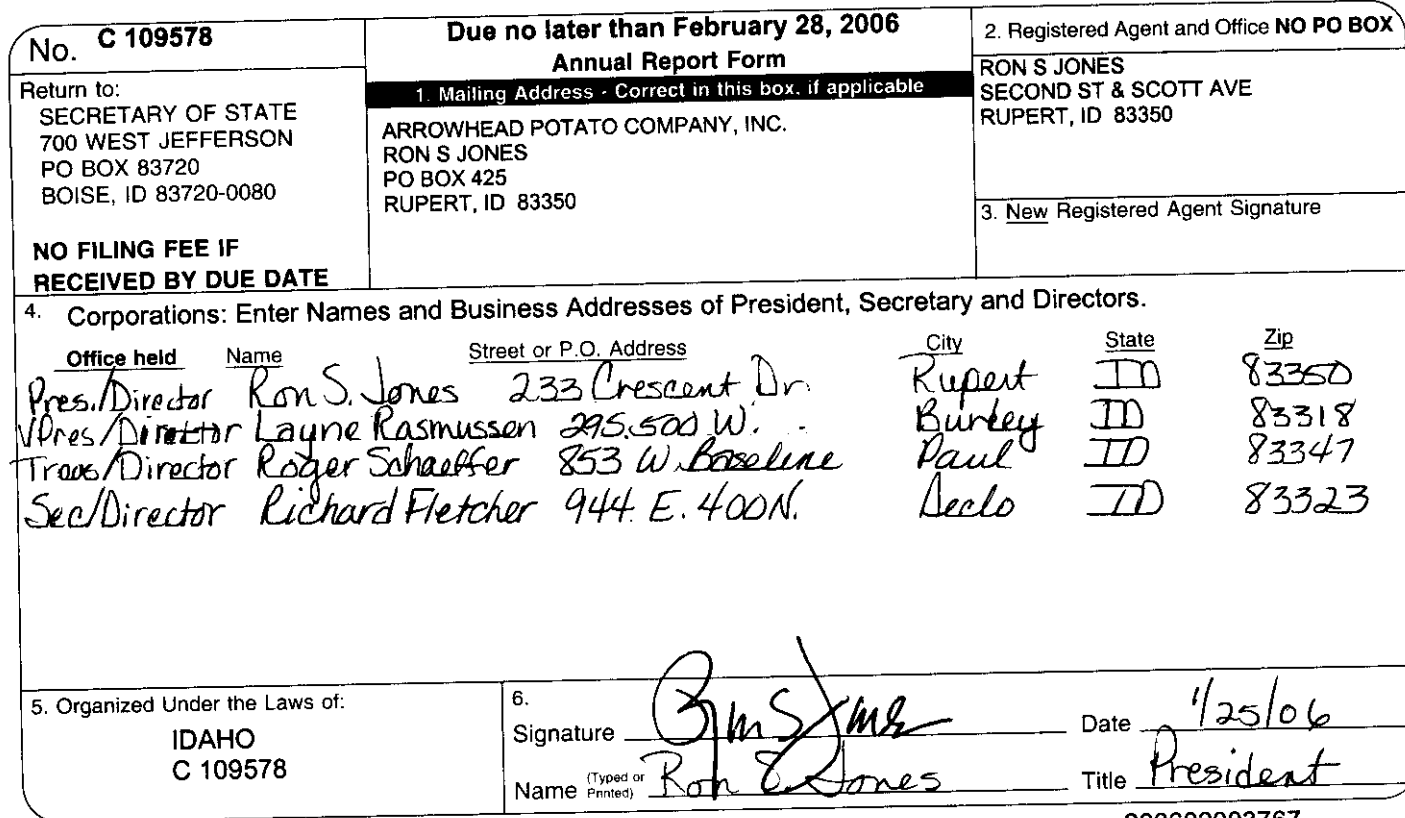 No. C 109578
Return to:
SECRETARY OF STATE
700 WEST JEFFERSON
PO BOX 83720
BOISE, ID 83720-0080
NO FILING FEE IF
RECEIVED BY DUE DATE
Due no later than February 28, 2006
Annual Report Form
1. Mailing Address - Correct in this box, if applicable
ARROWHEAD POTATO COMPANY, INC.
RON S JONES
PO BOX 425
RUPERT, ID 83350
2. Registered Agent and Office NO PO BOX
RON S JONES
SECOND ST & SCOTT AVE
RUPERT, ID 83350
3. New Registered Agent Signature
4. Corporations: Enter Names and Business Addresses of President, Secretary and Directors.
Office held Name Street or P.O. Address City State Zip
Pres./Director Ron S. Jones 233 Crescent Dr. Rupert ID 83350
VPres/Director Layne Rasmussen 295.500 W. Burley ID 83318
Treas/Director Roger Schaeffer 853 W. Baseline Paul ID 83347
Sec/Director Richard Fletcher 944 E. 400N. Declo ID 83323
5. Organized Under the Laws of:
IDAHO
C 109578
6.
Signature Ron S Jones Date 1/25/06
Name (Typed or Printed) Ron S. Jones Title President